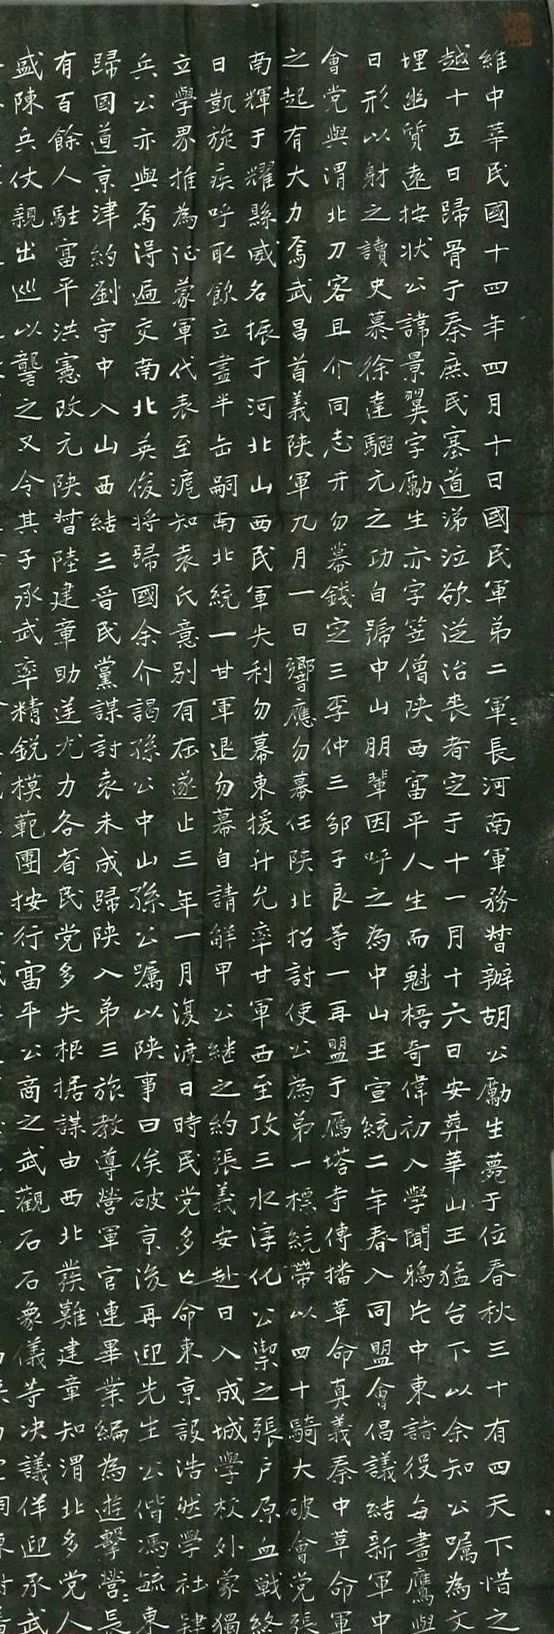 維中華民國十四年四月十日國民軍弟二軍=長河南軍務督辦胡公勵生薨于位春秋三十有四天下惜之
越十五日歸骨于秦庶民塞道涕泣欲從治喪者定于十一月十六日安葬華山王猛台下以余知公囑為文
埋幽質遠按狀公諱景翼字勵生亦字笠僧陝西富平人生而魁梧奇偉初入學聞鴉片中東諸役每晝鷹與
日形以射之讀史慕徐達驅元之功自號中山朋輩因呼之為中山王宣統二年春入同盟會倡議結新軍中
會党與渭北刀客且介同志井勿幕錢定三李仲三鄒子良等一再盟于雁塔寺傳播革命真義秦中革命軍
之起有大力焉武昌首義陝軍九月一日響應勿幕任陝北招討使公為弟一標統帶以四十騎大破會党張
南輝于耀縣威名振于河北山西民軍失利勿幕東援升允率甘軍西至攻三水淳化公禦之張户原血戰終
日凱旋疾呼取飲立盡半缶嗣南北統一甘軍退勿幕自請解甲公繼之約張義安赴日入成城學校外蒙獨
立學界推為征蒙軍代表至滬知袁氏意别有在遂止三年一月復渡日時民党多亡命東京設浩然學社肄
兵公亦與焉得遍交南北英俊将歸國余介謁孫公中山孫公囑以陝事曰俟破京後再迎先生公偕馮毓東
歸國道京津約劉守中入山西結三晋民黨謀討袁未成歸陝入弟三旅教導營軍官連畢業編為遊擊營=長
有百餘人駐富平洪憲改元陝督陸建章助逆尤力各省民党多失根據謀由西北發難建章知渭北多党人
盛陳兵仗親出巡以讋之又令其子承武率精鋭模範團按行富平公商之武觀石石象儀等决議佯迎承武